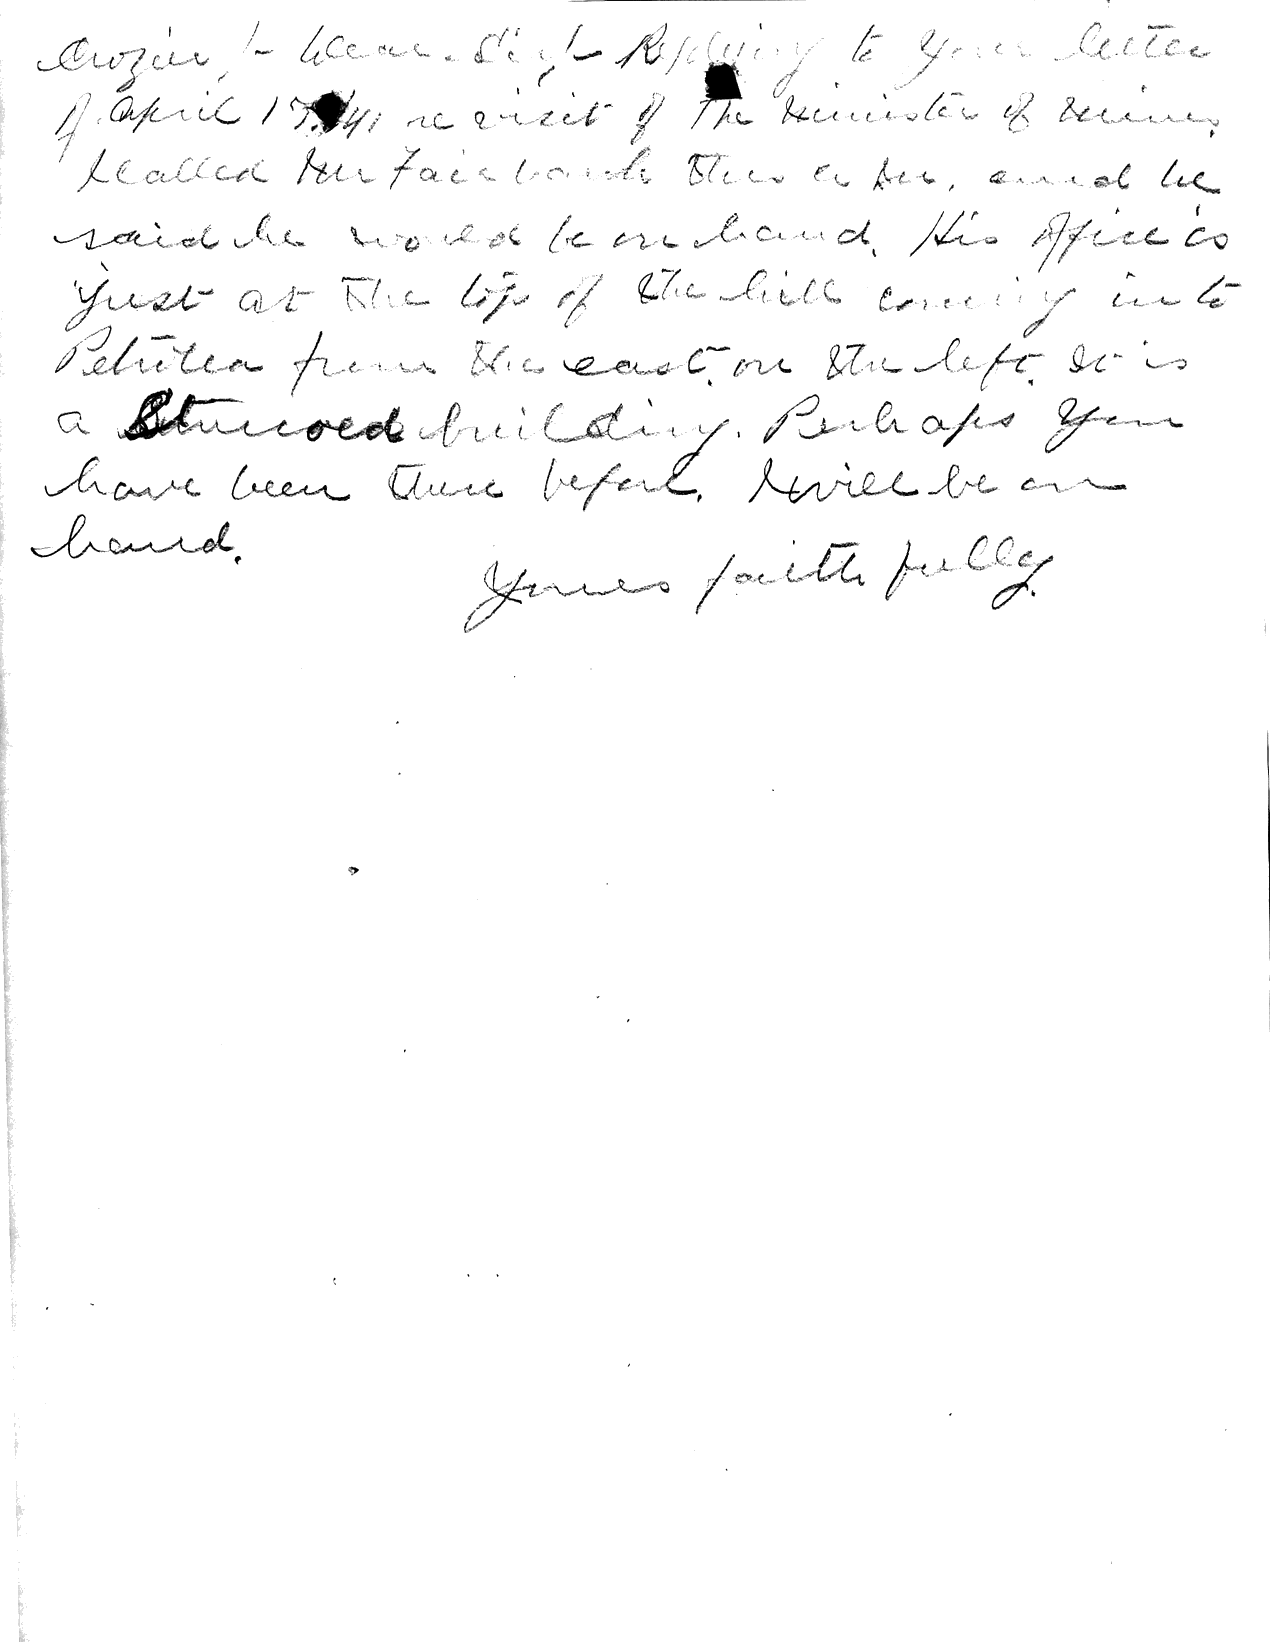 Crozier,- Dear Sir,- Replying to your letter
of April 17/41 re visit of the Minister of Mines
I called Mr Fairbank this a.m. and he
said he would be on hand. His office is
just at the top of the hill coming into
Petrolea from the east, on the left. It is
a Stuccoed building. Perhaps you
have been there before. I will be on
hand.
Yours faithfully.